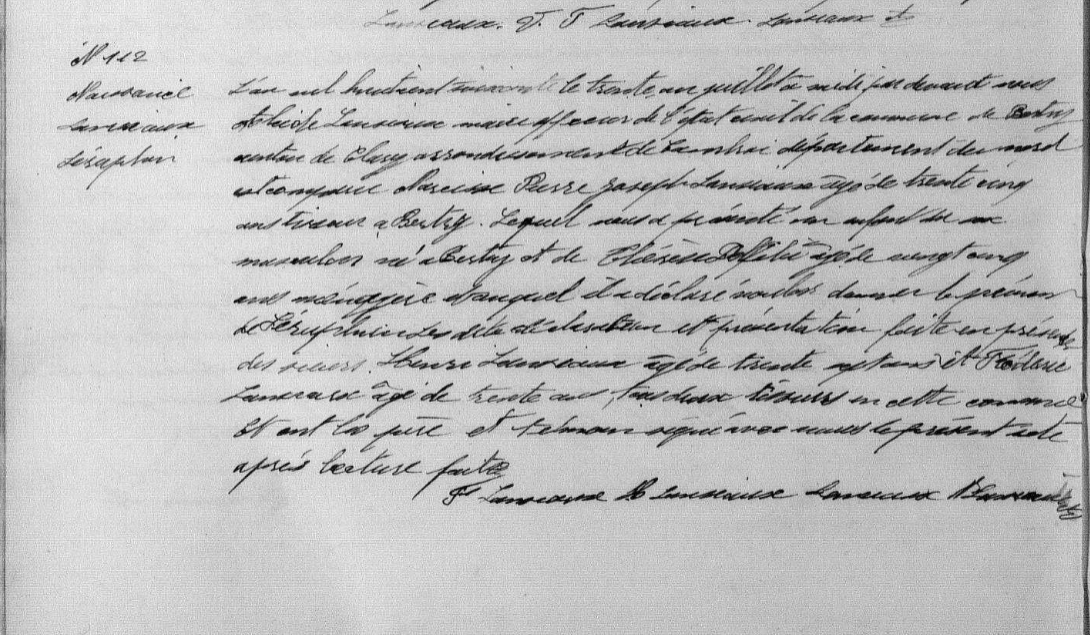 Lanseaux. V. F Lanseaux. Lanseaux
N 112
Naissance
Lanseaux
Séraphin
L'an mil huitcent soixante le trente un juillet a midi par devant nous
Lanseaux maire officier de l'état civil de la commune de Bertry
canton de Clary arrondissement de Cambrai département du nord
est comparu Narcisse Pierre Joseph Lanseaux âgé de trente cinq
ans tisseur a Bertry. Lequel nous a présenté un enfant du sexe
masculin né a Bertry et de Thérèse âgé de vingt cinq
ans ménagère auquel il a déclaré vouloir donner le prénom
de Séraphin Les dite déclaration et présentation faite en présence
des sieurs. Henri Lanseaux âgé de trente sept ans et
Lanseaux âgé de trente ans, tous deux tisseurs en cette commune
et ont les père et témoin signé avec nous le présent acte
après lecture faite
F Lanseaux H Lanseaux Lanseaux N Lanseaux